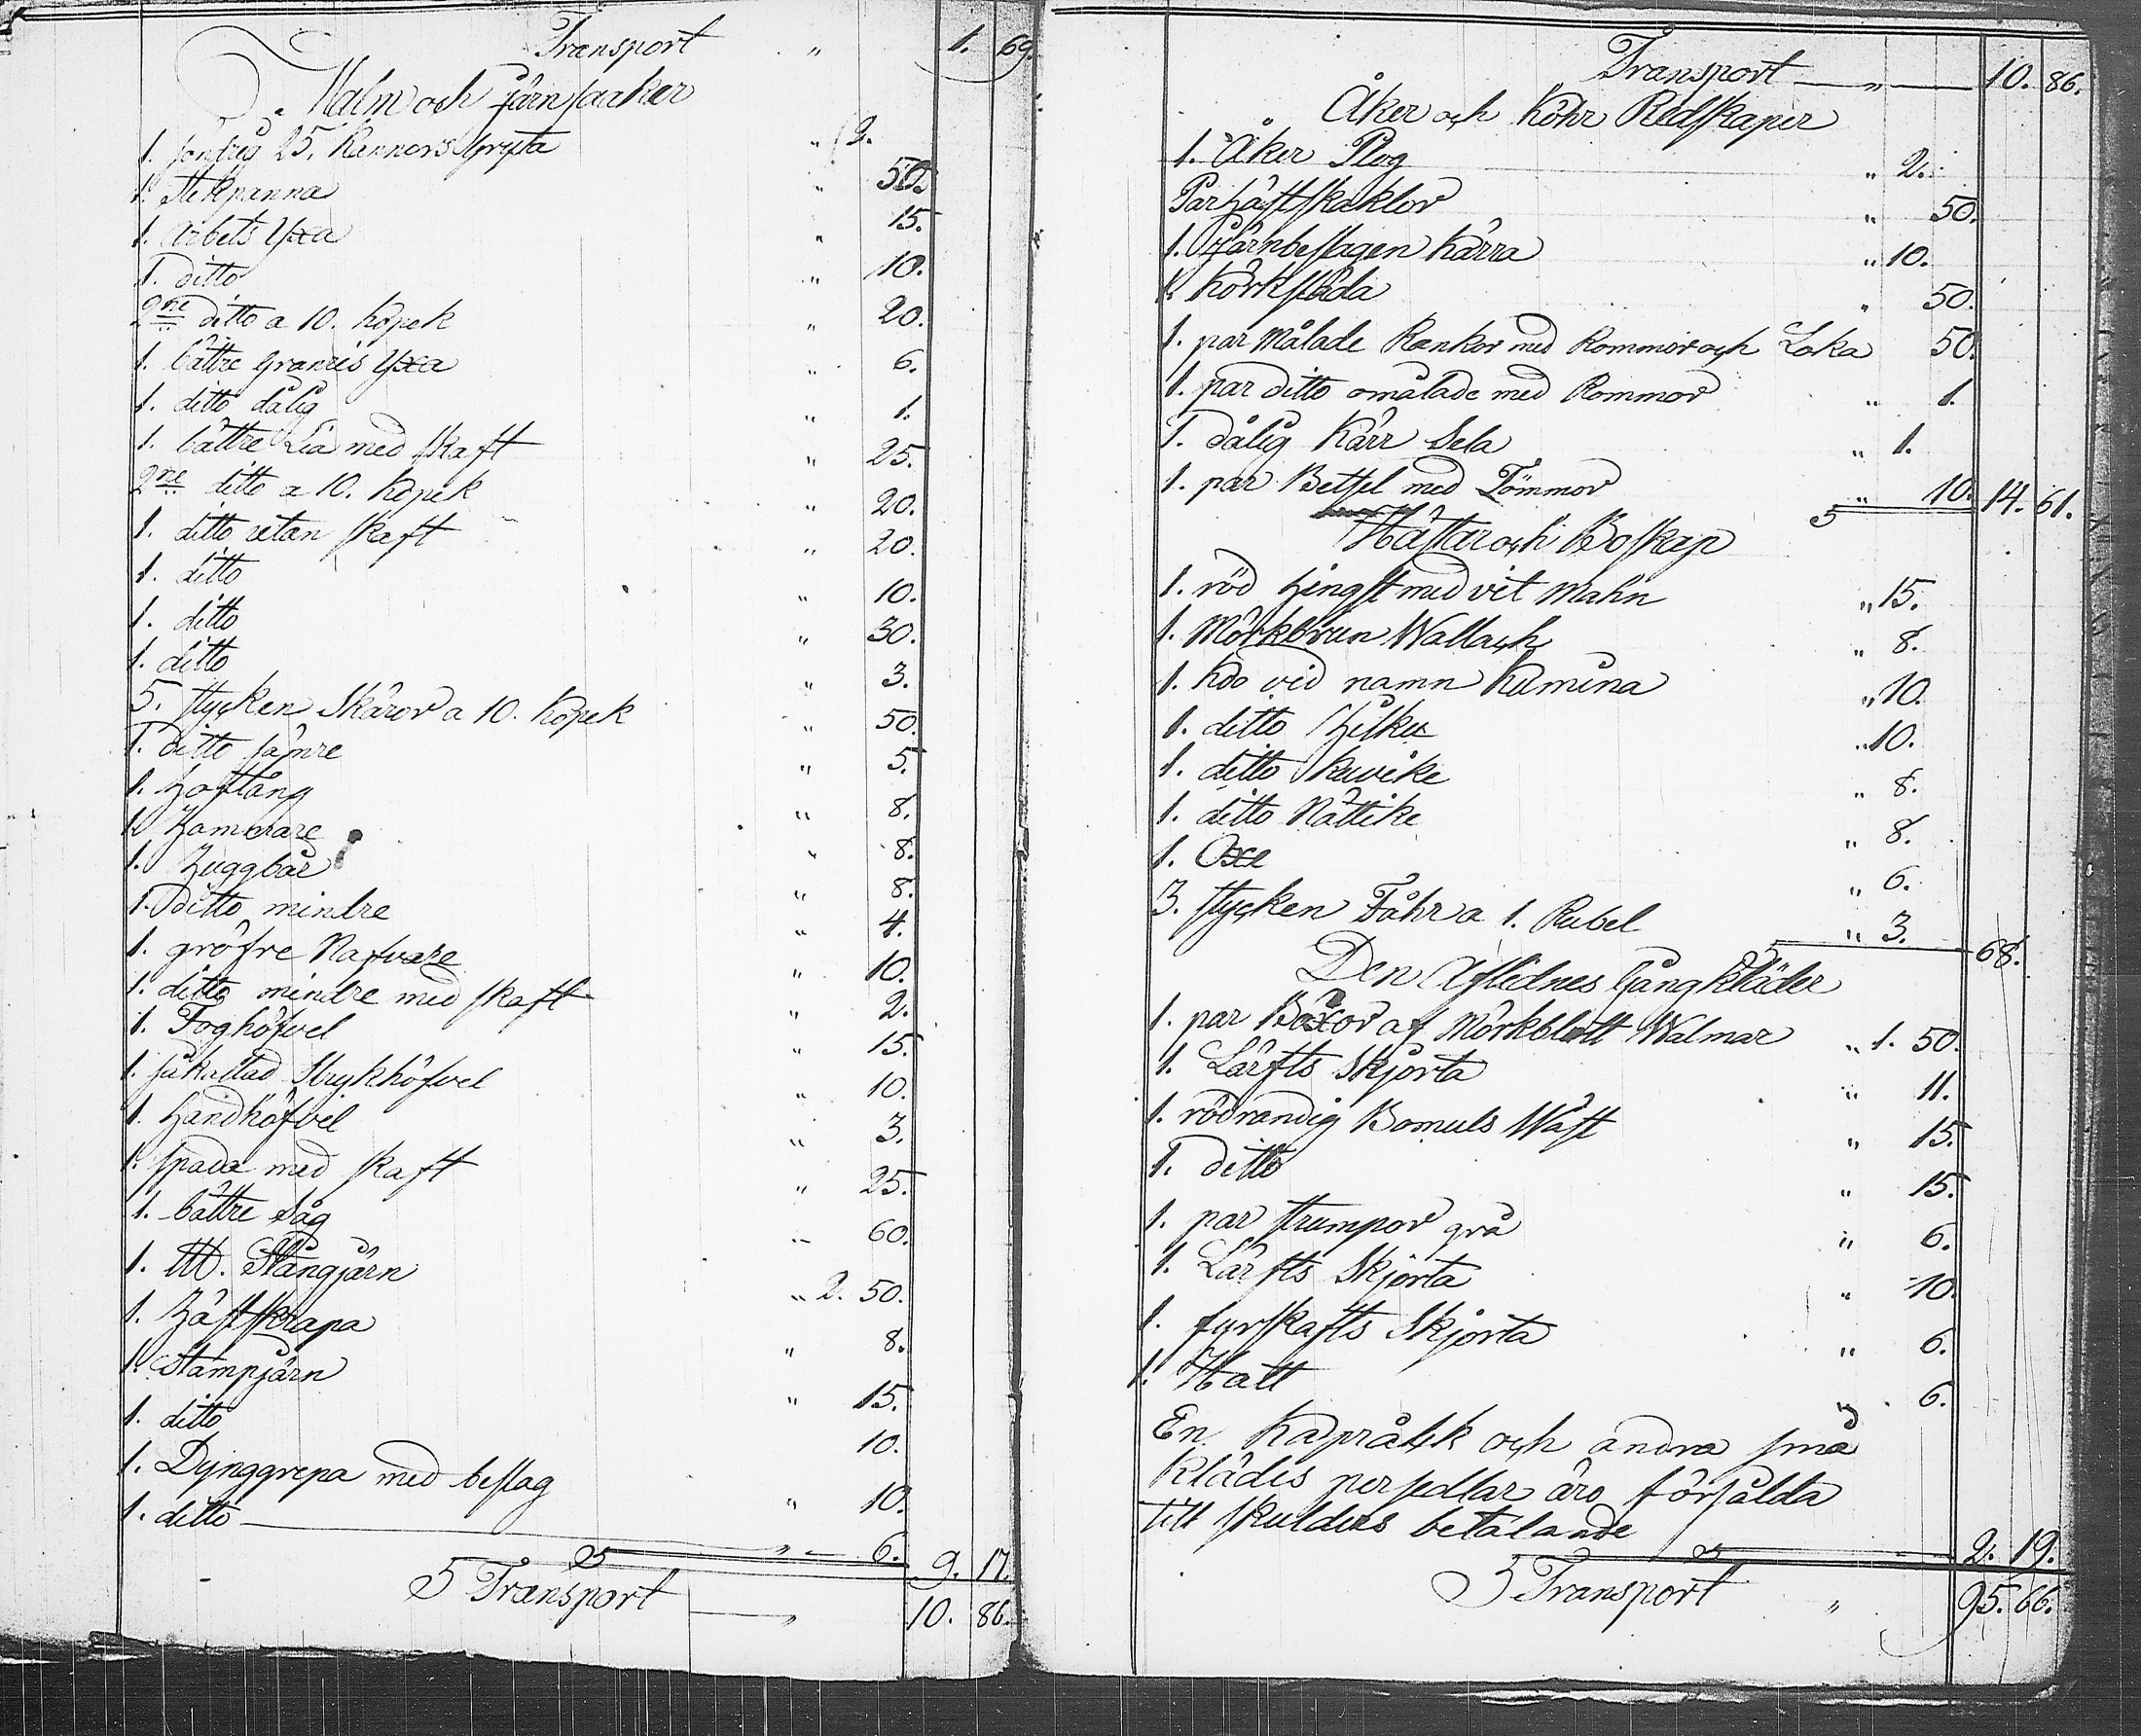 Transport " 1. 69.
Malm och Järnsaker
1. 25. Kannors Gryta " 2.
1. Stekpanna " 50.
1. Arbets Yxa " 15.
1. ditto " 10.
2ne ditto a 10. Kopek " 20.
1. bättre granris Yxa " 6.
1. ditto dålig " 1.
1. bättre Lia med skaft " 25.
2ne ditto a 10. Kopek " 20.
1. ditto utan skaft " 20.
1. ditto " 10.
1. ditto " 30.
1. ditto " 3.
5. stycken Skäror a 10. Kopek " 50.
1. ditto sämre " 5.
1. Hoftång " 8.
1. Hamare " 8.
1. Huggbår " 8.
1. ditto mindre " 4.
1. gröfre Nafvare " 10.
1. ditto mindre med skaft " 2.
1. Foghöfvel " 15.
1. såkallad Strykhöfvel " 10.
1. Handhöfvel " 3.
1. spada med skaft " 25.
1. bättre Såg " 60.
1. Stångjärn " 2. 50.
1. Hästskrapa " 8.
1. Stampjärn " 15.
1. ditto 10.
1. Dynggrepa med beslag " 10.
1. ditto " 6. 9. 17.
Transport " 10. 86.
Transport " 10. 86.
Åker och Köhr Redskaper
1. Åker Plog " 2.
Par Hästskaklor " 50.
1. Järnbeslagen Kärra " 10.
1. Körkslåda " 50.
1. par Målade Rankor med Rommor och Loka 50.
1. par ditto omålade med Rommor " 1.
1. dålig Kärr Sela " 1.
1. par Betsel med Tömmor " 10. 14. 61.
Hästar och Boskap
1. röd Hingst med vit Mahn " 15.
1. Mörkbrun Wallach " 8.
1. Koo vid namn Kamina " 10.
1. ditto Hilku " 10.
1. ditto Kuvike " 8.
1. ditto Nättike " 8.
1. Oxe " 6.
3. stycken Fåhr a 1. Rubel " 3. 68.
Den Aflidnes Gångkläder
1. par Böxor af Mörkblått Walmar " 1. 50.
1. Lärfts Skjorta " 11.
1. rödrandig Bomuls Wäst " 15.
1. ditto " 15.
1. par strumpor grå " 6.
1. Lärfts Skjorta " 10.
1. fyrskafts Skjorta " 6.
1. Hatt " 6.
En och andra små
Klädes persedlar äro försålda
till skulders betalande 2. 19.
Transport " 95. 66.